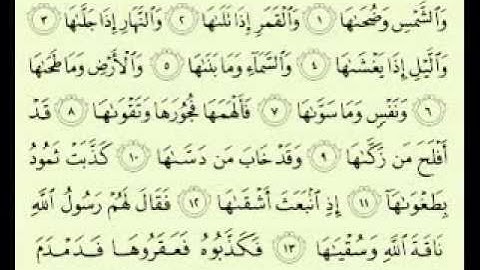 وَٱلشَّمْسِ وَضُحَىٰهَا ١ وَٱلْقَمَرِ إِذَا تَلَىٰهَا ٢ وَٱلنَّهَارِ إِذَا جَلَّىٰهَا ٣
وَٱلَّيْلِ إِذَا يَغْشَىٰهَا ٤ وَٱلسَّمَآءِ وَمَا بَنَىٰهَا ٥ وَٱلْأَرْضِ وَمَا طَحَىٰهَا
٦ وَنَفْسٍ وَمَا سَوَّىٰهَا ٧ فَأَلْهَمَهَا فُجُورَهَا وَتَقْوَىٰهَا ٨ قَدْ
أَفْلَحَ مَن زَكَّىٰهَا ٩ وَقَدْ خَابَ مَن دَسَّىٰهَا ١٠ كَذَّبَتْ ثَمُودُ
بِطَغْوَىٰهَآ ١١ إِذِ ٱنۢبَعَثَ أَشْقَىٰهَا ١٢ فَقَالَ لَهُمْ رَسُولُ ٱللَّهِ
نَاقَةَ ٱللَّهِ وَسُقْيَٰهَا ١٣ فَكَذَّبُوهُ فَعَقَرُوهَا فَدَمْدَمَ